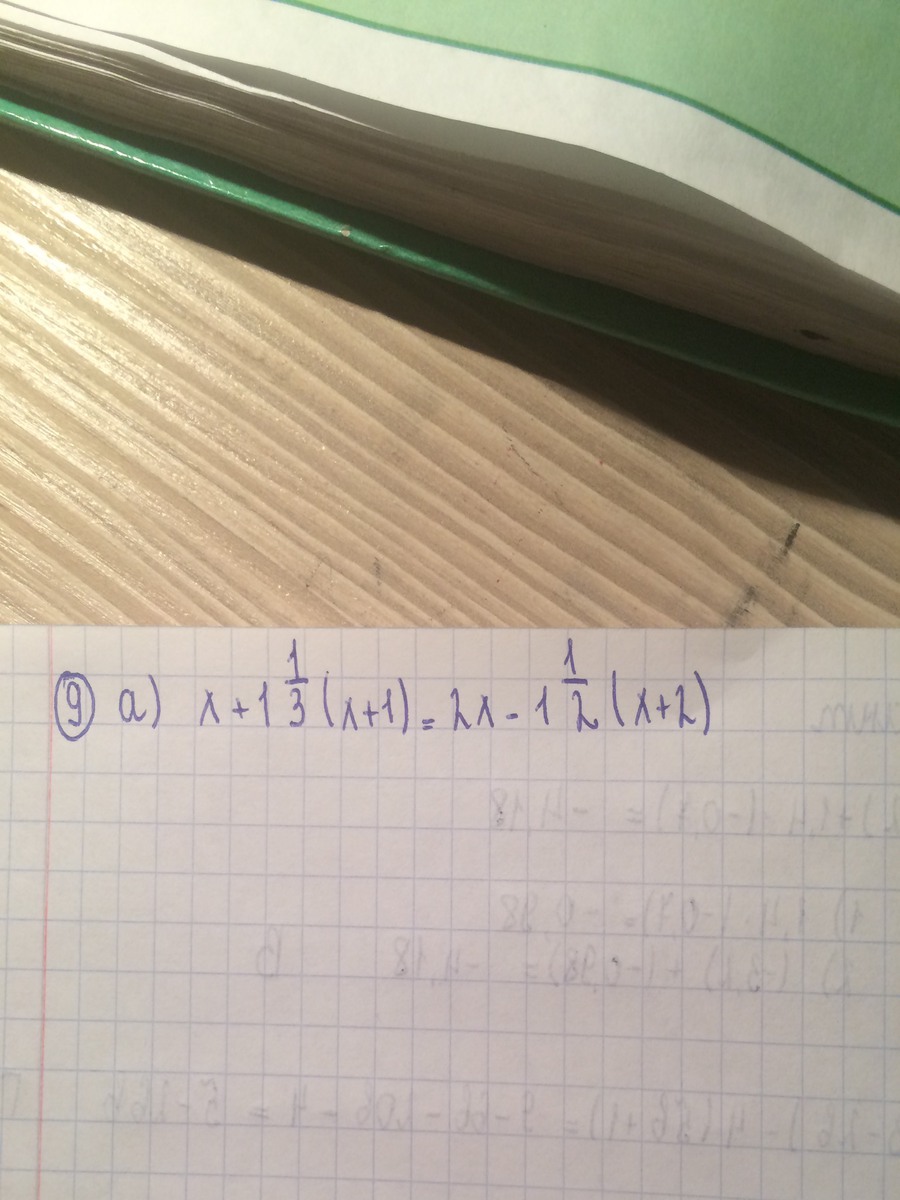 9 а) x + 1 1/3 (x+1) = 2x - 1 1/2 (x+2)